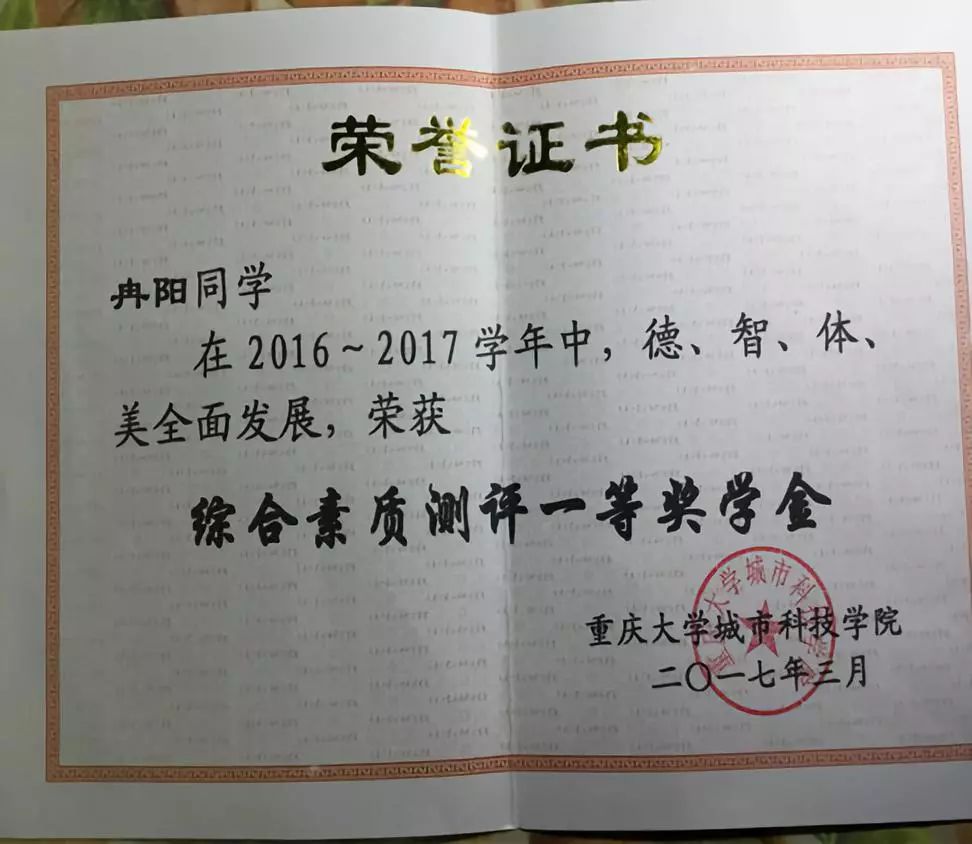 荣誉证书
冉阳同学
在2016～2017学年中，德、智、体、
美全面发展，荣获
综合素质测评一等奖学金
重庆大学城市科技学院
二〇一七年三月
重庆大学城市科技学院